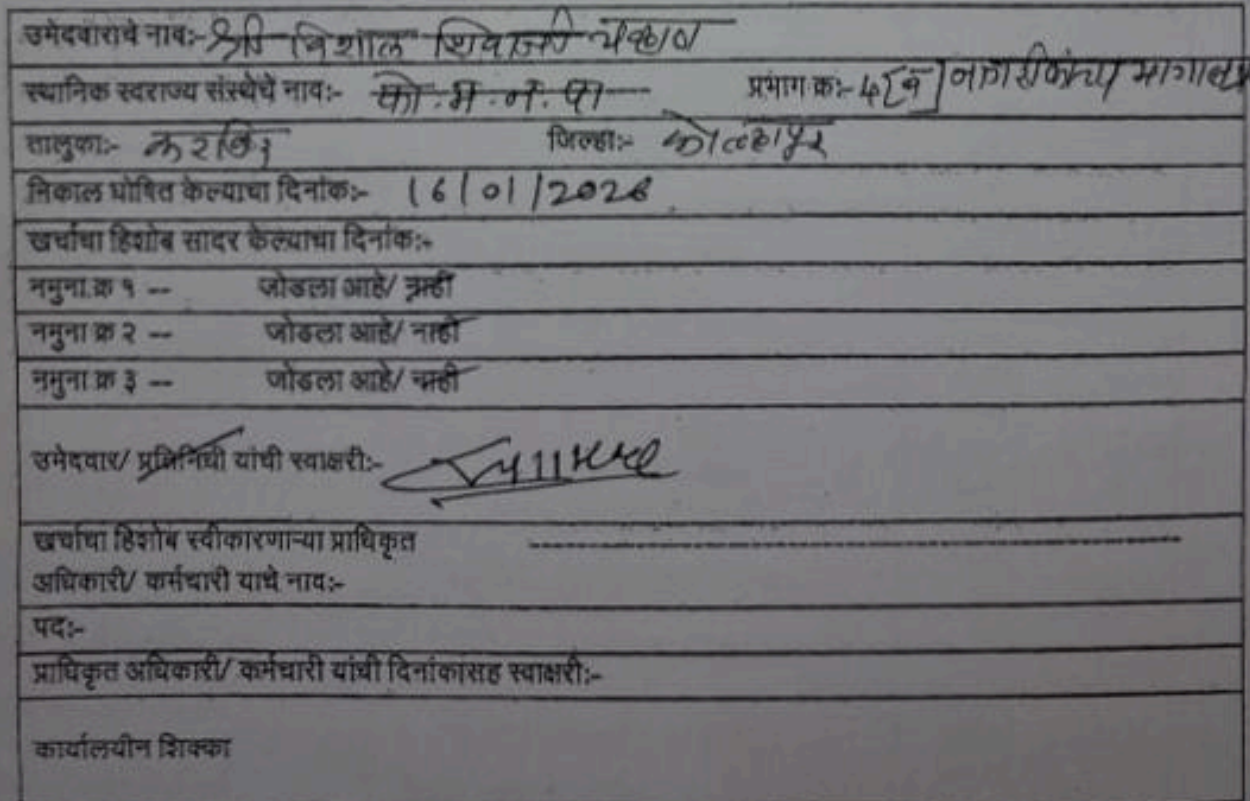 उमेदवाराचे नाव:- श्री विशाल शिवाजी चव्हाण
स्थानिक स्वराज्य संस्थेचे नाव:- को.म.न.पा प्रभाग क्र:- 4[ब] नागरीकांचा मागास
तालुका:- करवीर जिल्हा:- कोल्हापूर
निकाल घोषित केल्याचा दिनांक:- 16/01/2026
खर्चाचा हिशोब सादर केल्याचा दिनांक:-
नमुना क्र १ -- जोडला आहे/ नाही
नमुना क्र २ -- जोडला आहे/ नाही
नमुना क्र ३ -- जोडला आहे/ नाही
उमेदवार/ प्रतिनिधी यांची स्वाक्षरी:-
खर्चाचा हिशोब स्वीकारणाऱ्या प्राधिकृत
अधिकारी/ कर्मचारी याचे नाव:-
पद:-
प्राधिकृत अधिकारी/ कर्मचारी यांची दिनांकासह स्वाक्षरी:-
कार्यालयीन शिक्का